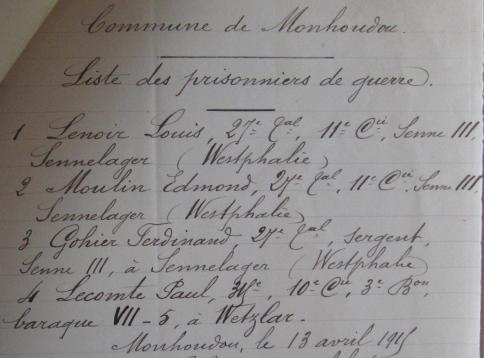 Commune de Monhoudou.
Liste des prisonniers de guerre.
1 Lenoir Louis, 27e tal, 11e Cie, Senne III,
Sennelager (Westphalie)
2 Moulin Edmond, 27e tal, 11e Cie, Senne III,
Sennelager (Westphalie)
3 Gohier Ferdinand, 27e tal, sergent,
Senne III, à Sennelager (Westphalie)
4 Lecomte Paul, 10e Cie, 3e Bon,
baraque VII-5, à Wetzlar.
Monhoudou, le 13 avril 1915